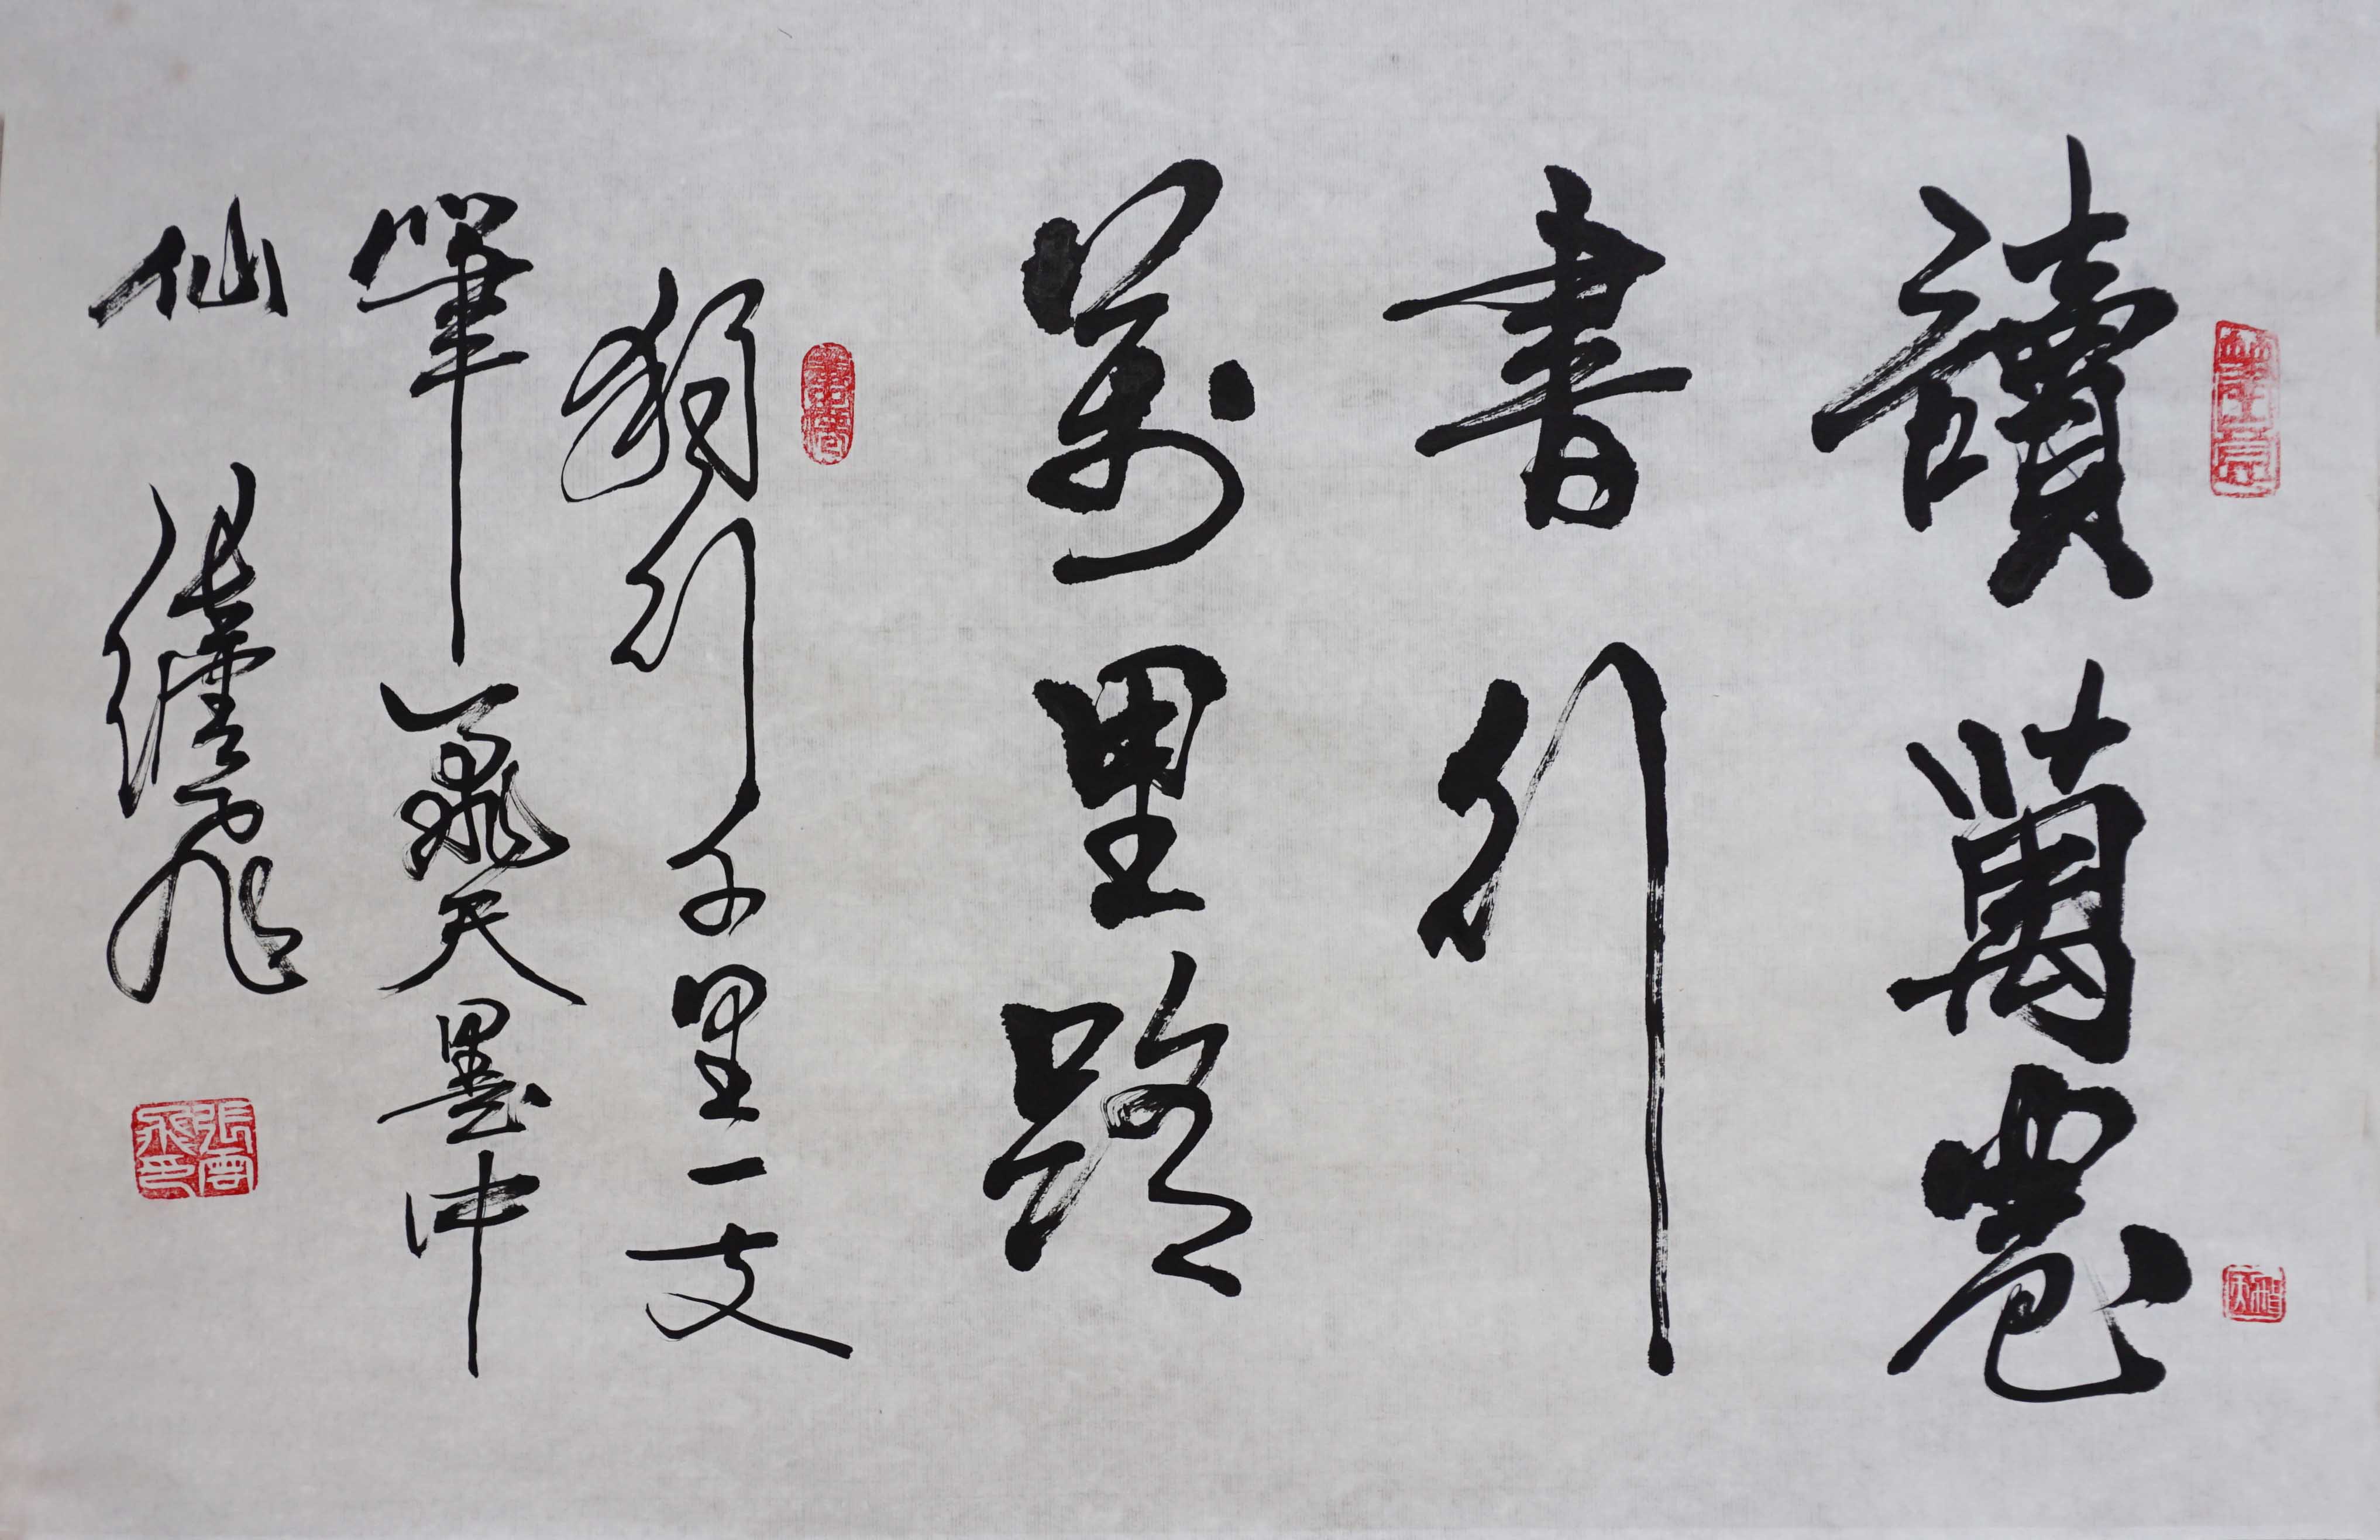 讀萬卷
書行
萬里路
獨行千里一支
筆天墨中
仙
張飛
張雲飛印